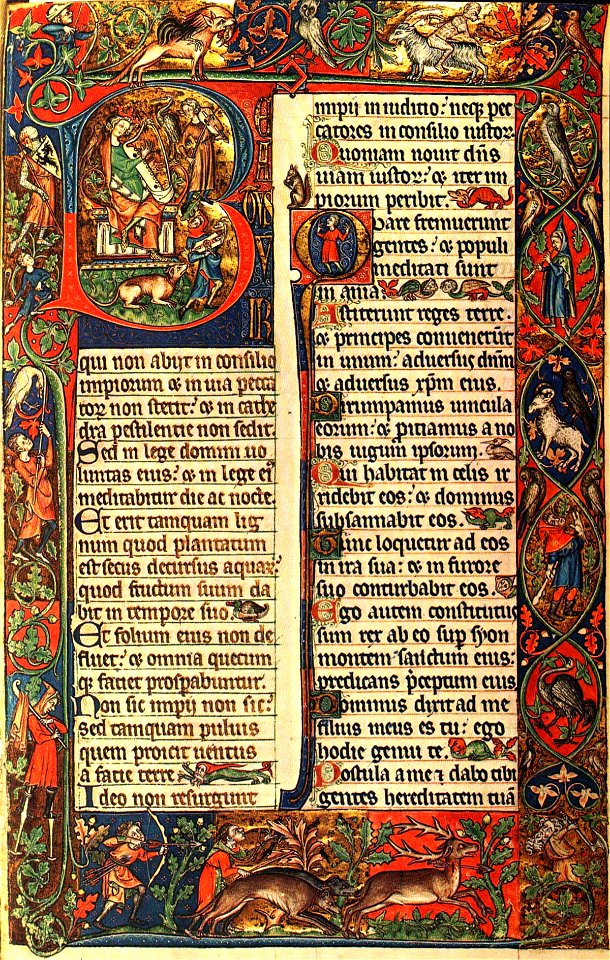 B
qui non abijt in consilio
impiorum & in uia pecca
tor non stetit: & in cathe
dra pestilentie non sedit.
Sed in lege domini uo
luntas eius: & in lege ei
meditabitur die ac nocte.
Et erit tamquam lig
num quod plantatum
est secus decursus aquar
quod fructum suum da
bit in tempore suo
Et folium eius non de
fluet: & omnia quecum
q; faciet prospabuntur.
Non sic impij non sic:
sed tamquam puluis
quem proicit uentus
a facie terre
Ideo non resurgunt
impij in iuditio: neq; pec
catores in consilio iustor
Quoniam nouit dns
uiam iustor: & iter im
piorum peribit.
Quare fremuerunt
gentes: & populi
meditati sunt
in ania:
Astiterunt reges terre.
& principes conuenerut
in unum: aduersus dnm
& aduersus xpm eius.
Dirumpamus uincula
eorum: & piciamus a no
bis iugum ipsorum.
Qui habitat in celis ir
ridebit eos: & dominus
subsannabit eos.
Tunc loquetur ad eos
in ira sua: & in furore
suo conturbabit eos.
Ego autem constitutus
sum rex ab eo sup syon
montem sanctum eius:
predicans pceptum eius
Dominus dixit ad me
filius meus es tu: ego
hodie genui te.
Postula a me ⁊ dabo tibi
gentes hereditatem tuā